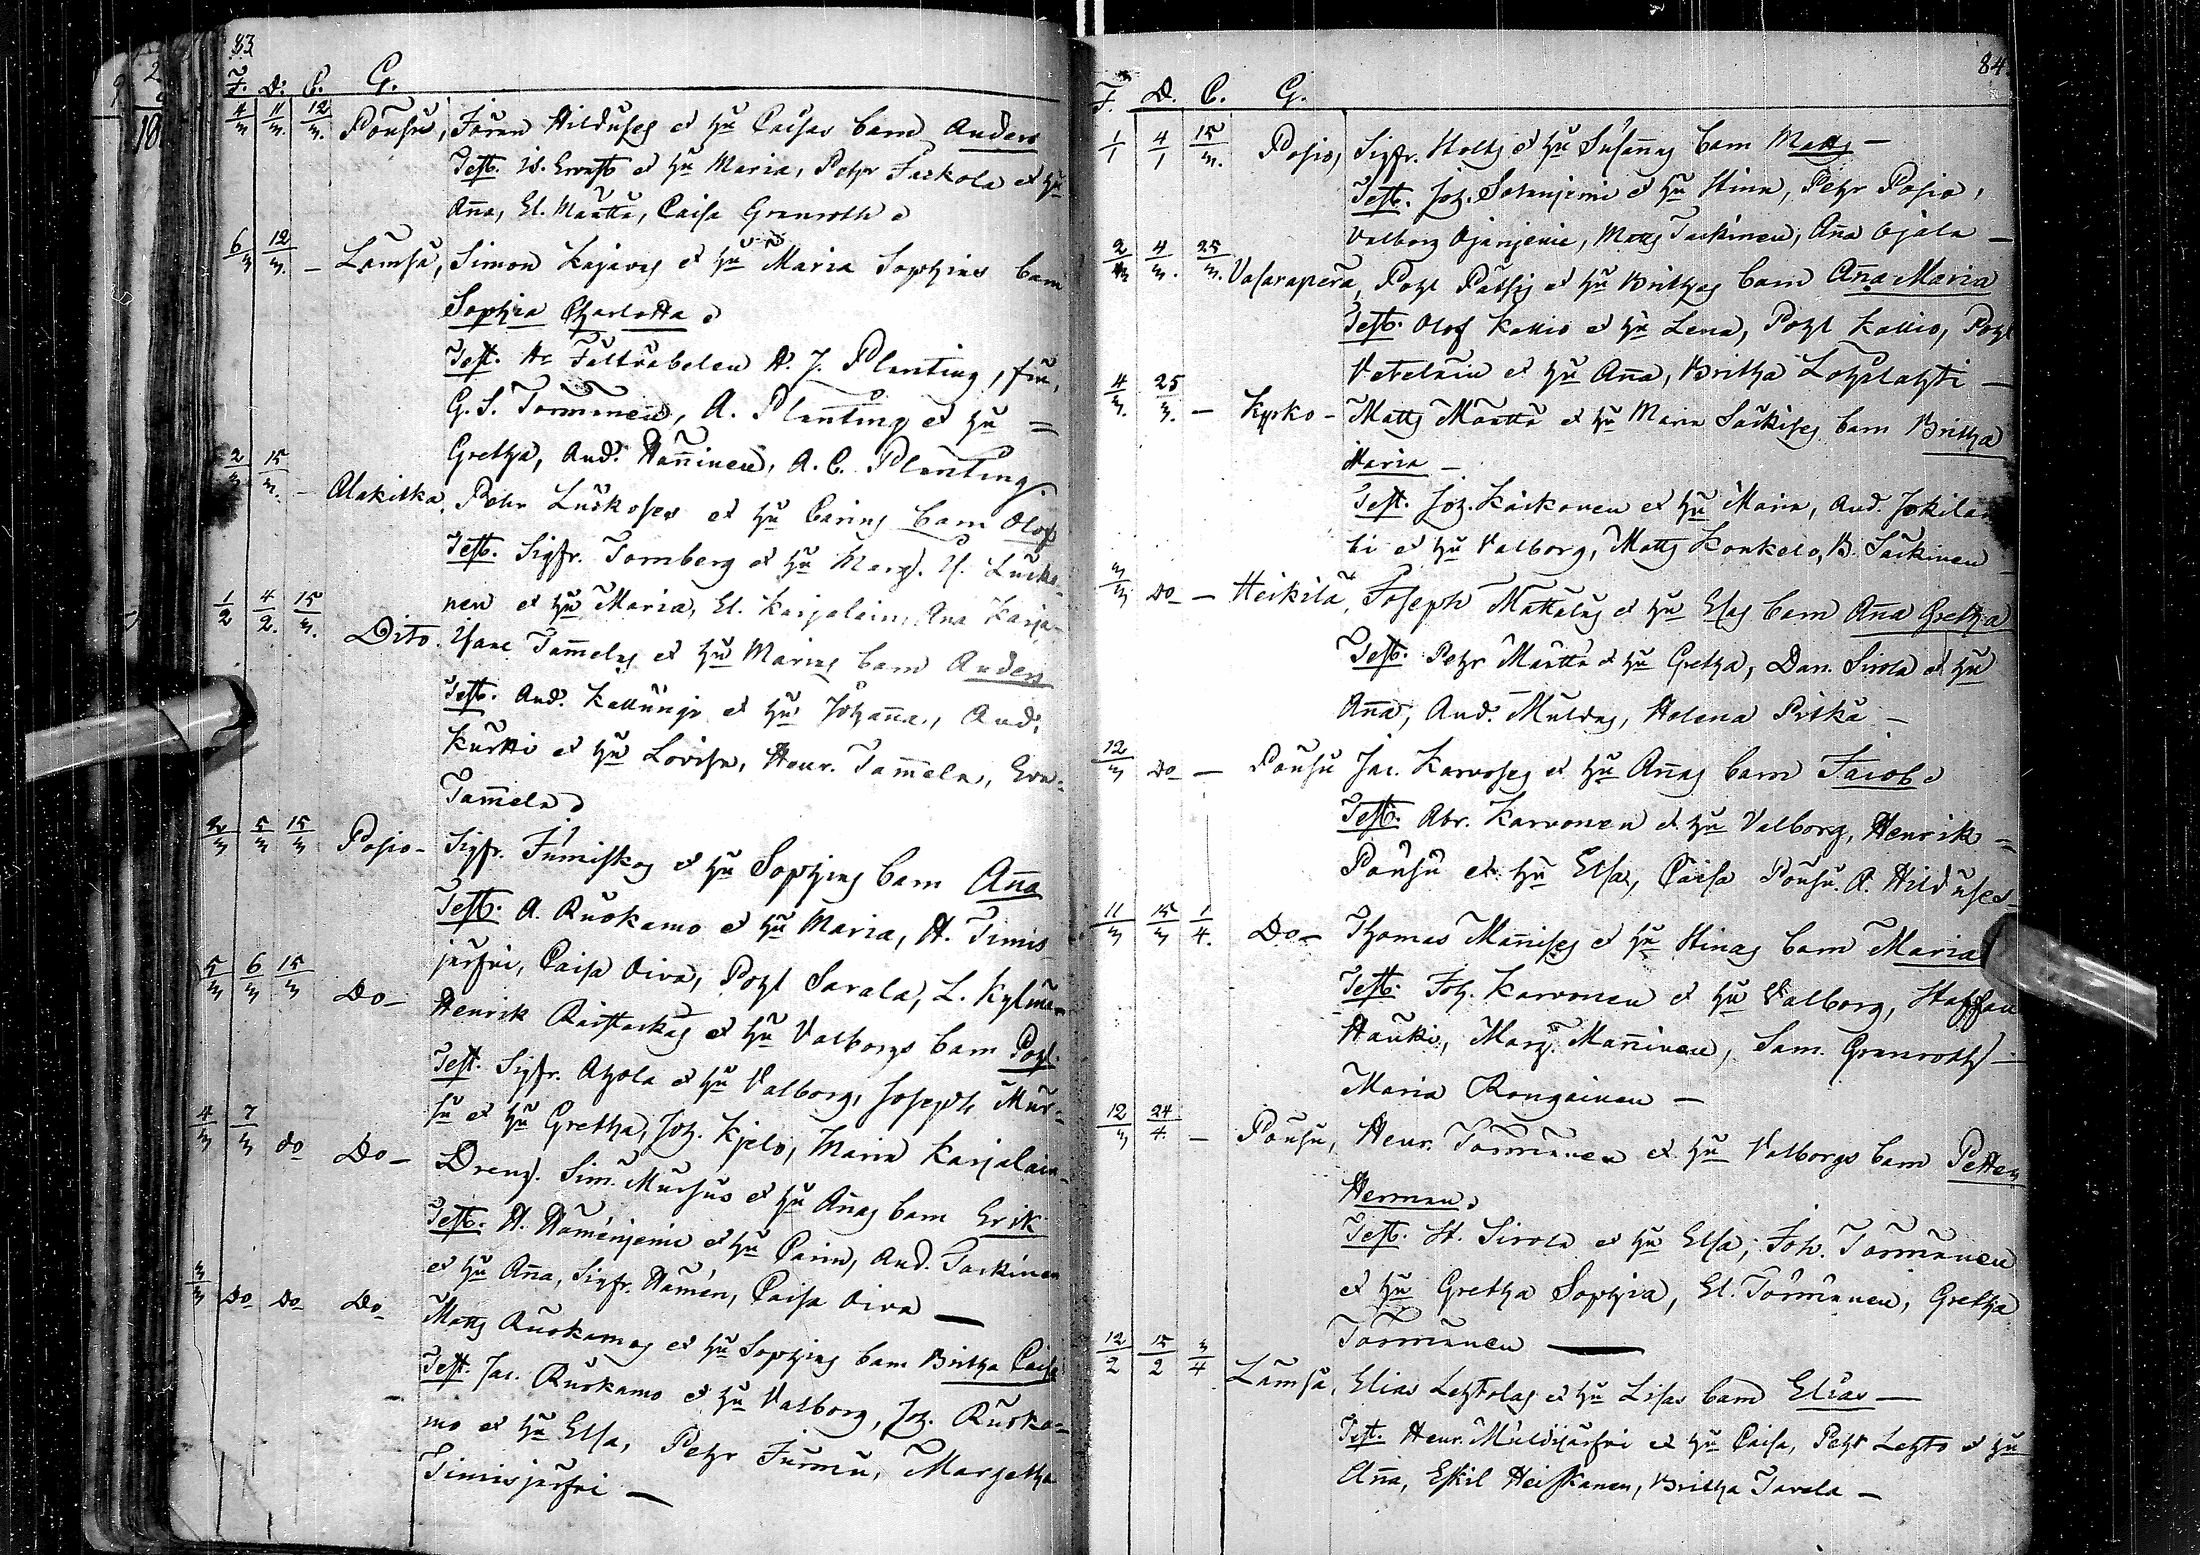 83
F. D: C. G.
4/m 11/m. 12/m. Pousu, Jöran Hilduses et hu Caisas barn Anders
Test. Is. Ervast et hu Maria, Pehr Jaskola et hu
Aña, El. Määttä, Caisa Granroth
6/m 12/m. – Lämsä, Simon Kajavas et hu Maria Sophias barn
Sophia Charlotta
Test. Hr Fältväbelen H. J. Planting, fru,
G. S. Tormänen, A. Planting et hu =
Gretha, And. Hänninen, A. C. Planting.
2/m 15/m. – Alakitka, Pehr Luukoses et hu Carins barn Olof
Test. Sigfr. Tornberg et hu Marg. Is. Lucka-
nen et hu Maria, El. Karjalain, Aña Karja-
1/2 4/2. 15/m. Dito. Isaac Tam̄elas et hu Marias barn Anders
Test. And. Kallungi et hu Johanna, And.
Kurtti et hu Lovisa, Henr. Tam̄ela, Eva
Tam̄ela
2/m 5/m 15/m Posio – Sigfr. Jumiskos et hu Sophias barn Aña
Test. A. Ruokamo et hu Maria, H. Timis-
jerfvi, Caisa Oiva, Pohl Sarala, L. Kylmän
5/m 6/m 15/m Do – Henrik Raistackas et hu Valborgs barn Pohl
Test. Sigfr. Ahola et hu Valborg, Joseph Mur-
su et hu Gretha, Joh. Kjelo, Maria Karjalain
4/m 7/m do Do – Dreng. Sim. Mursus et hu Añas barn Erik
Test. H. Hamenjemi et hu Carin, And. Jaskinen
et hu Aña, Sigfr. Hamén, Caisa Oiva –
m/m Do Do Do Matts Ruokamos et hu Sophias barn Britha Caisa
Test. Jac. Ruokamo et hu Valborg, Joh. Ruoka-
mo et hu Elsa, Pehr Jurmu, Margetha
Timisjerfvi –
84.
F. D. C. G.
1/1 4/1 15/m. Posio, Sigfr. Holtz et hu Susañas barn Matts –
Test. Joh. Sotanjemi et hu Stina, Pehr Posio,
Valborg Ojanjemi, Matts Jaskinen, Aña Ojala –
2/m 4/m. 25/m. Vasarapera, Pohl Patsis et hu Brithas barn Aña Maria
Test. Olof Kallio et hu Lena, Pohl Kallio, Pohl
Vetelain et hu Aña, Britha Lohilahti –
4/m. 25/m. – Kyrko – Matts Määttä et hu Maria Säkises barn Britha
Maria –
Test. Joh. Käskonen et hu Maria, And. Jokilam
bi et hu Valborg, Matts Konkelo, B. Säkinen
m/m Do – Heikilä, Joseph Mattalas et hu Elsas barn Aña Gretha
Test. Pehr Määttä et hu Gretha, Dan. Sirola et hu
Aña, And. Muldas, Helena Pitkä –
12/m Do – Pousu Jac. Karvoses et hu Añas barn Jacob
Test. Abr. Karvonen et hu Valborg, Henrik =
Pousu et hu Elsa, Caisa Pousu. A. Hilduses –
11/m 15/m 1/4. Do – Thomas Mañises et hu Stinas barn Maria
Test. Joh. Karvonen et hu Valborg, Staffan
Hauki, Marg. Mañinen, Sam. Granroth –
Maria Rongainen –
12/m 24/4. – Pousu, Henr. Törmänen et hu Valborgs barn Petter
Herman
Test. H. Sirola et hu Elsa, Joh. Törmänen
et hu Gretha Sophia, El. Törmänen, Gretha
Törmänen –
12/2 15/2 m/4 Lämsä, Elias Lehtolas et hu Lisas barn Elias –
Test. Henr. Muldijärfvi et hu Caisa, Pehr Lehto et hu
Aña, Eskil Heiskanen, Britha Tavela –